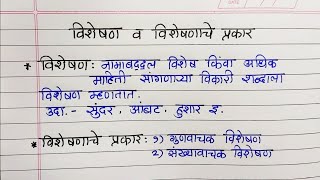 विशेषण व विशेषणाचे प्रकार
* विशेषण: नामाबद्दल विशेष किंवा अधिक
माहिती सांगणाऱ्या विकारी शब्दाला
विशेषण म्हणतात.
उदा. - सुंदर, आंबट, हुशार इ.
* विशेषणाचे प्रकार: १) गुणवाचक विशेषण
२) संख्यावाचक विशेषण